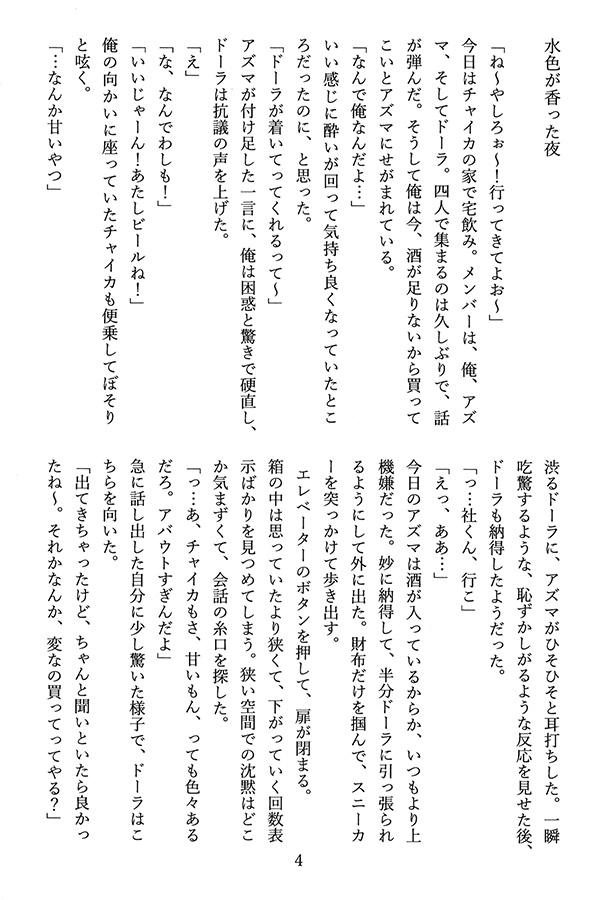 水色が香った夜
「ね～やしろぉ～！行ってきてよお～」
今日はチャイカの家で宅飲み。メンバーは、俺、アズ
マ、そしてドーラ。四人で集まるのは久しぶりで、話
が弾んだ。そうして俺は今、酒が足りないから買って
こいとアズマにせがまれている。
「なんで俺なんだよ…」
いい感じに酔いが回って気持ち良くなっていたとこ
ろだったのに、と思った。
「ドーラが着いてってくれるって～」
アズマが付け足した一言に、俺は困惑と驚きで硬直し、
ドーラは抗議の声を上げた。
「え」
「な、なんでわしも！」
「いいじゃーん！あたしビールね！」
俺の向かいに座っていたチャイカも便乗してぼそり
と呟く。
「…なんか甘いやつ」
渋るドーラに、アズマがひそひそと耳打ちした。一瞬
吃驚するような、恥ずかしがるような反応を見せた後、
ドーラも納得したようだった。
「っ…社くん、行こ」
「えっ、ああ…」
今日のアズマは酒が入っているからか、いつもより上
機嫌だった。妙に納得して、半分ドーラに引っ張られ
るようにして外に出た。財布だけを掴んで、スニーカ
ーを突っかけて歩き出す。
エレベーターのボタンを押して、扉が閉まる。
箱の中は思っていたより狭くて、下がっていく回数表
示ばかりを見つめてしまう。狭い空間での沈黙はどこ
か気まずくて、会話の糸口を探した。
「っ…あ、チャイカもさ、甘いもん、っても色々ある
だろ。アバウトすぎんだよ」
急に話し出した自分に少し驚いた様子で、ドーラはこ
ちらを向いた。
「出てきちゃったけど、ちゃんと聞いといたら良かっ
たね～。それかなんか、変なの買ってってやる？」
4